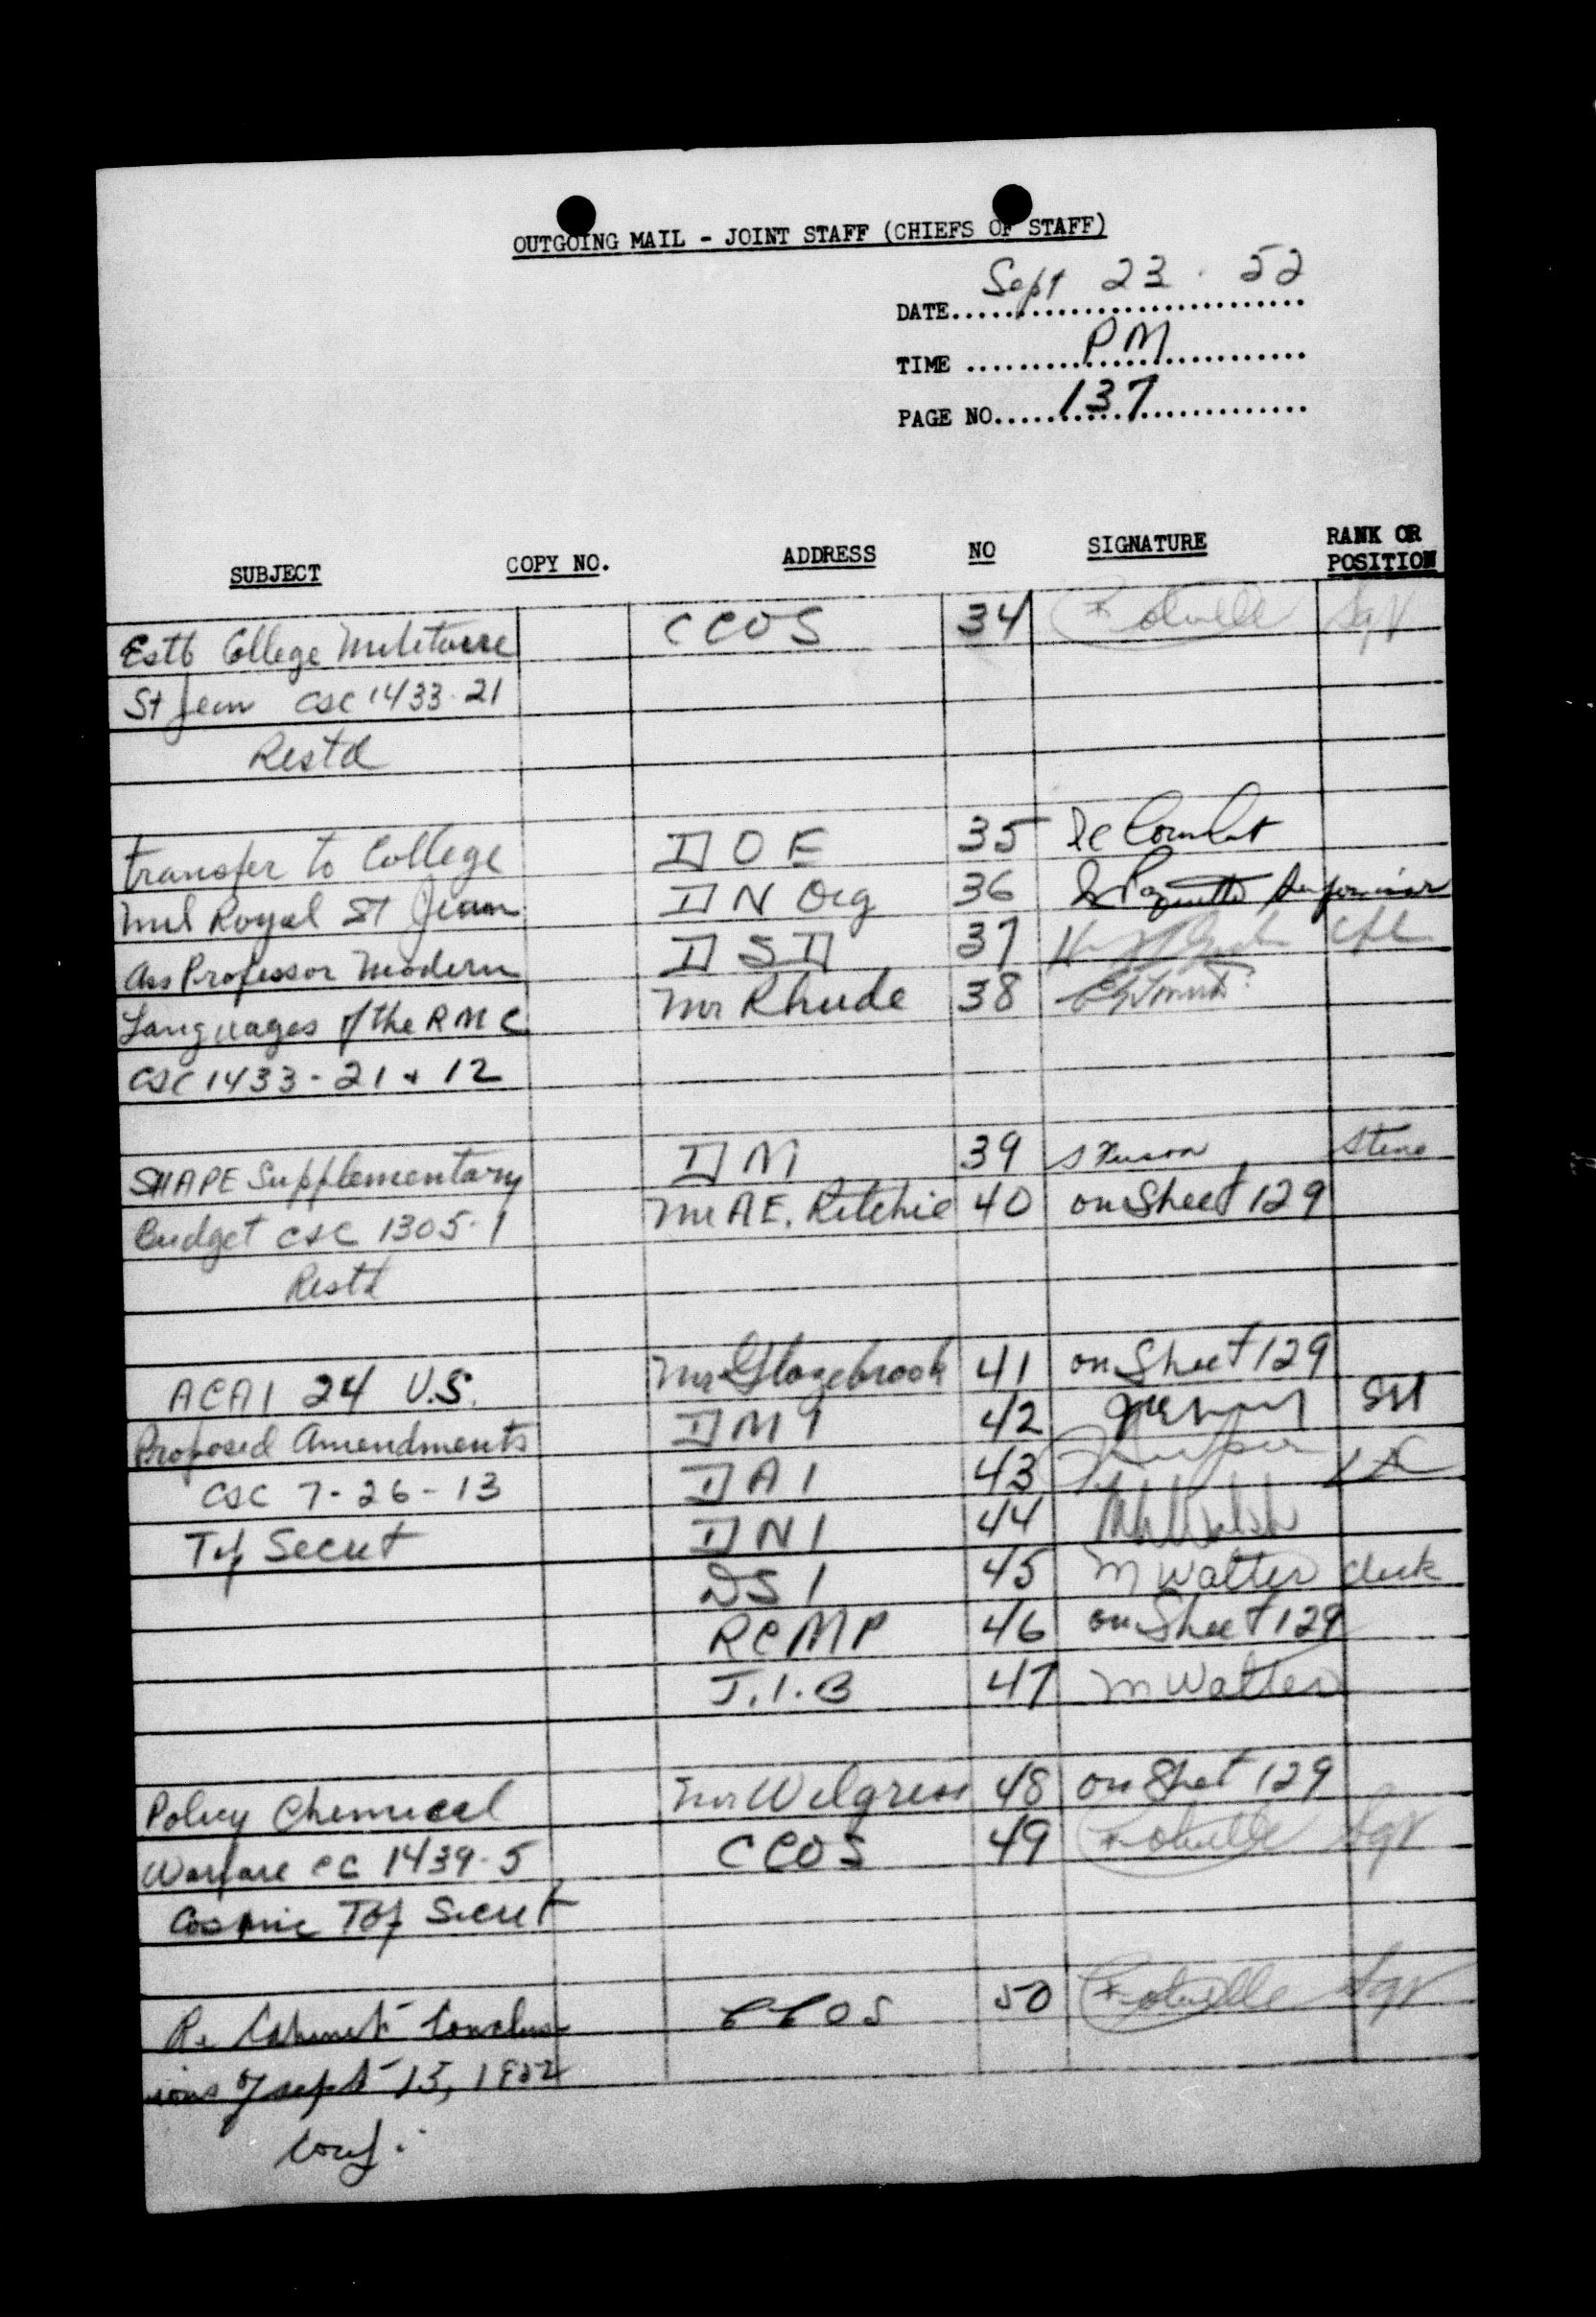 OUTGOING MAIL - JOINT STAFF (CHIEFS OF STAFF)
DATE Sept 23. 52
TIME PM
PAGE NO. 137
SUBJECT COPY NO. ADDRESS NO SIGNATURE RANK OR POSITION
Estb College Militaire CCOS 34 Sgt
St Jean CSC 1433-21
Restd
Transfer to College DOE 35
Mil Royal St Jean DN Org 36
Ass Professor Modern DSD 37 Cpl
Languages of the RMC Mr Rhude 38
CSC 1433-21 & 12
SHAPE Supplementary DM 39 Steno
Budget CSC 1305-1 Mr A E. Ritchie 40 on Sheet 129
Restd
ACAI 24 U.S. Mr Glazebrook 41 on Sheet 129
Proposed Amendments DMI 42
CSC 7-26-13 DAI 43
Top Secret DNI 44
DSI 45 M Walters Clerk
RCMP 46 on Sheet 129
J.I.B 47 M Walters
Policy Chemical Mr Wilgress 48 on Sheet 129
Warfare CC 1439-5 CCOS 49 Sgt
Cosmic Top Secret
Re Cabinet Conclus CCOS 50 Sgt
ions of Sept 15, 1952
Conf.